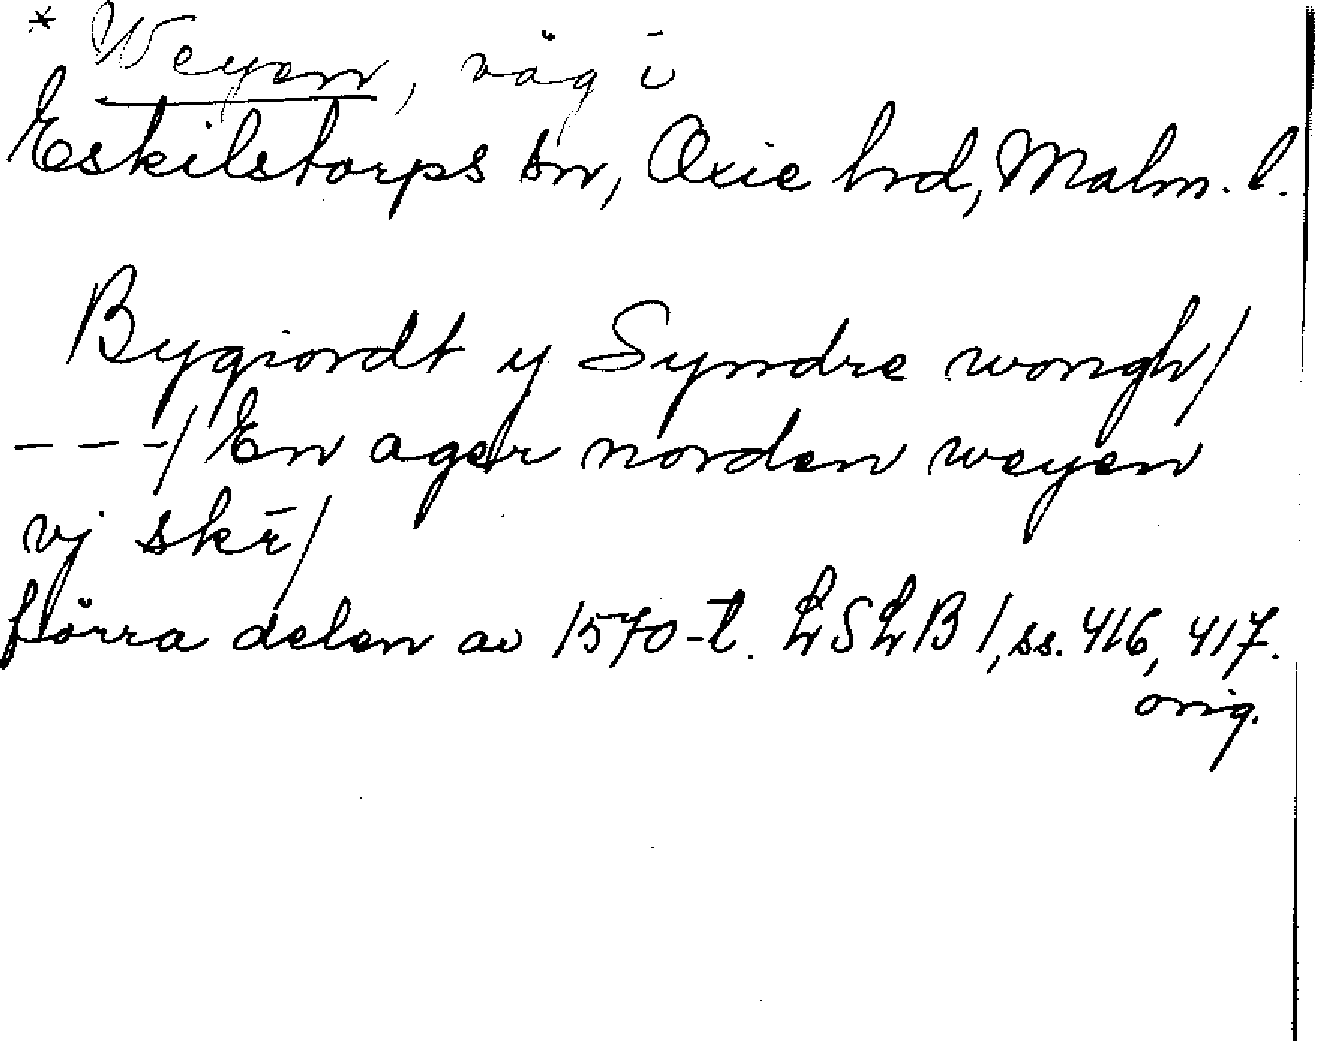 * Weyen, väg i
Eskilstorps sn, Oxie hrd, Malm. l.
Bygiordt y Syndre wongh/
---/ En ager norden weyen
vj skr̄/
förra delen av 1570-t. LSLB 1, ss. 416, 417.
orig.